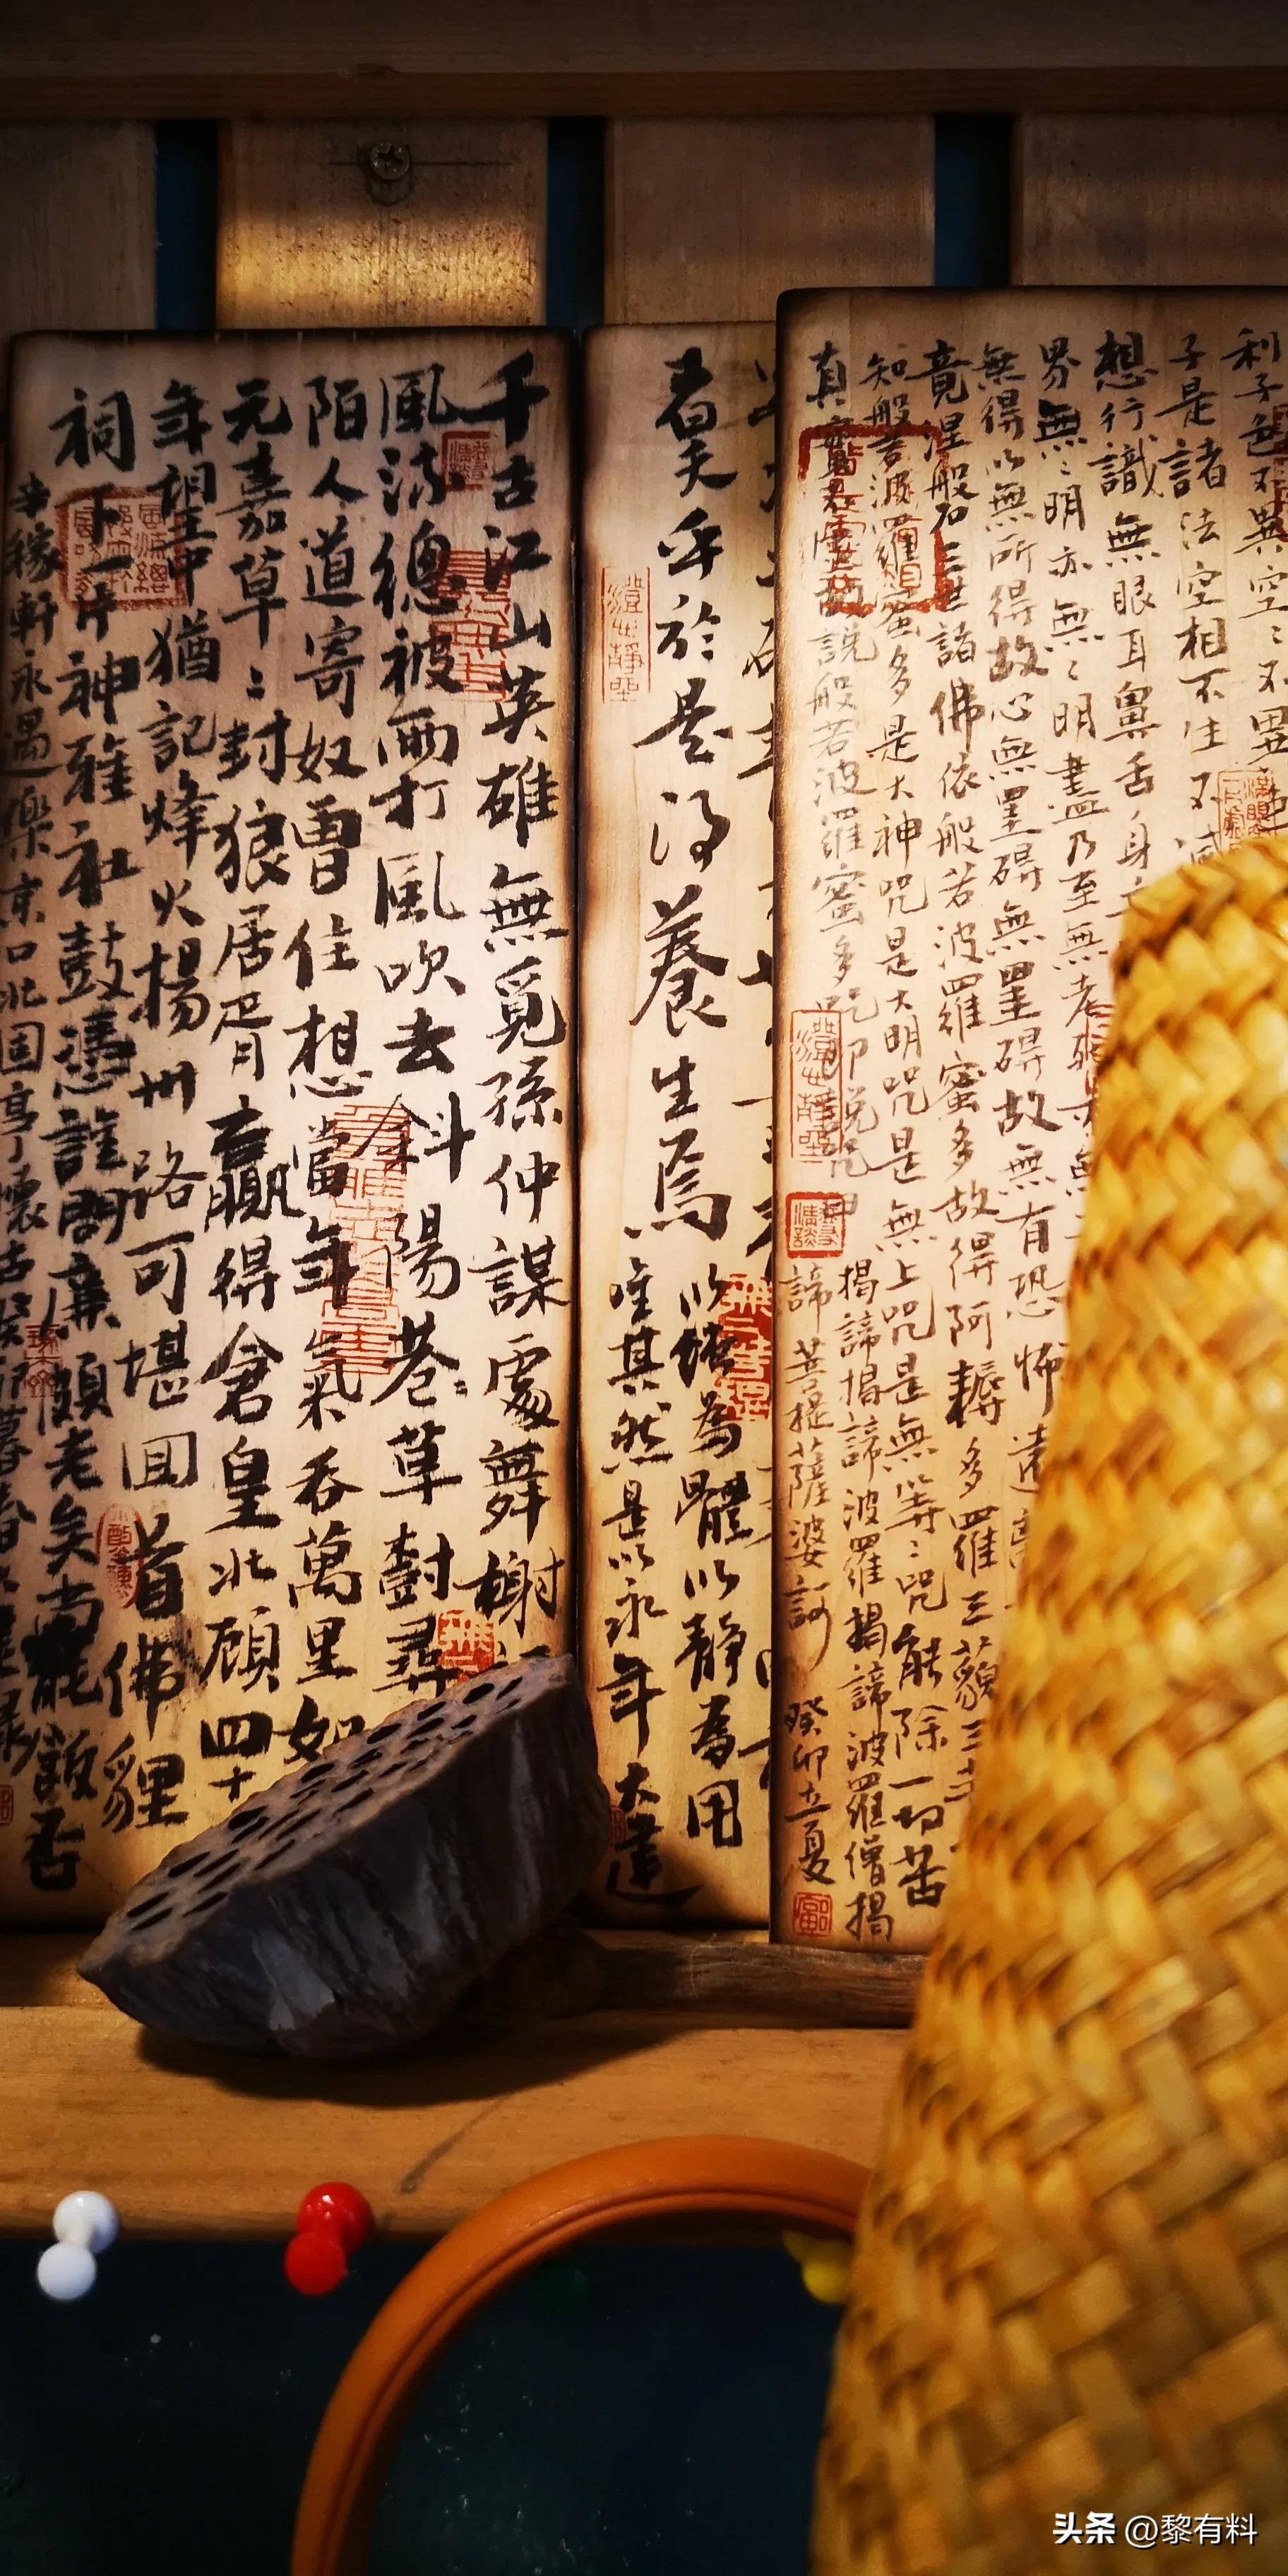 利子色不異空〻不異
子是諸法空相不生不滅
想行識無眼耳鼻舌身
界無〻明亦無〻明盡乃至無老死亦無
無得以無所得故心無罣礙無罣礙故無有恐怖遠
竟涅般三世諸佛依般若波羅蜜多故得阿耨多羅三藐三
知般若波羅蜜多是大神咒是大明咒是無上咒是無等〻咒能除一切苦
真實不虛故說般若波羅蜜多咒即說咒曰
揭諦揭諦波羅揭諦波羅僧揭
諦菩提薩婆訶 癸卯立夏
夫乎於是得養生焉
以鈍為體以靜為用
唯其然是以永年
千古江山英雄無覓孫仲謀處舞榭
風流總被雨打風吹去斜陽巷〻草樹尋
陌人道寄奴曾住想當年氣吞萬里如
元嘉草〻封狼居胥贏得倉皇北顧四十
年望中猶記烽火揚州路可堪回首佛貍
祠下一片神鴉社鼓憑誰問廉頗老矣尚能飯否
辛稼軒永遇樂京口北固亭懷古癸卯暮春
头条 @黎有料